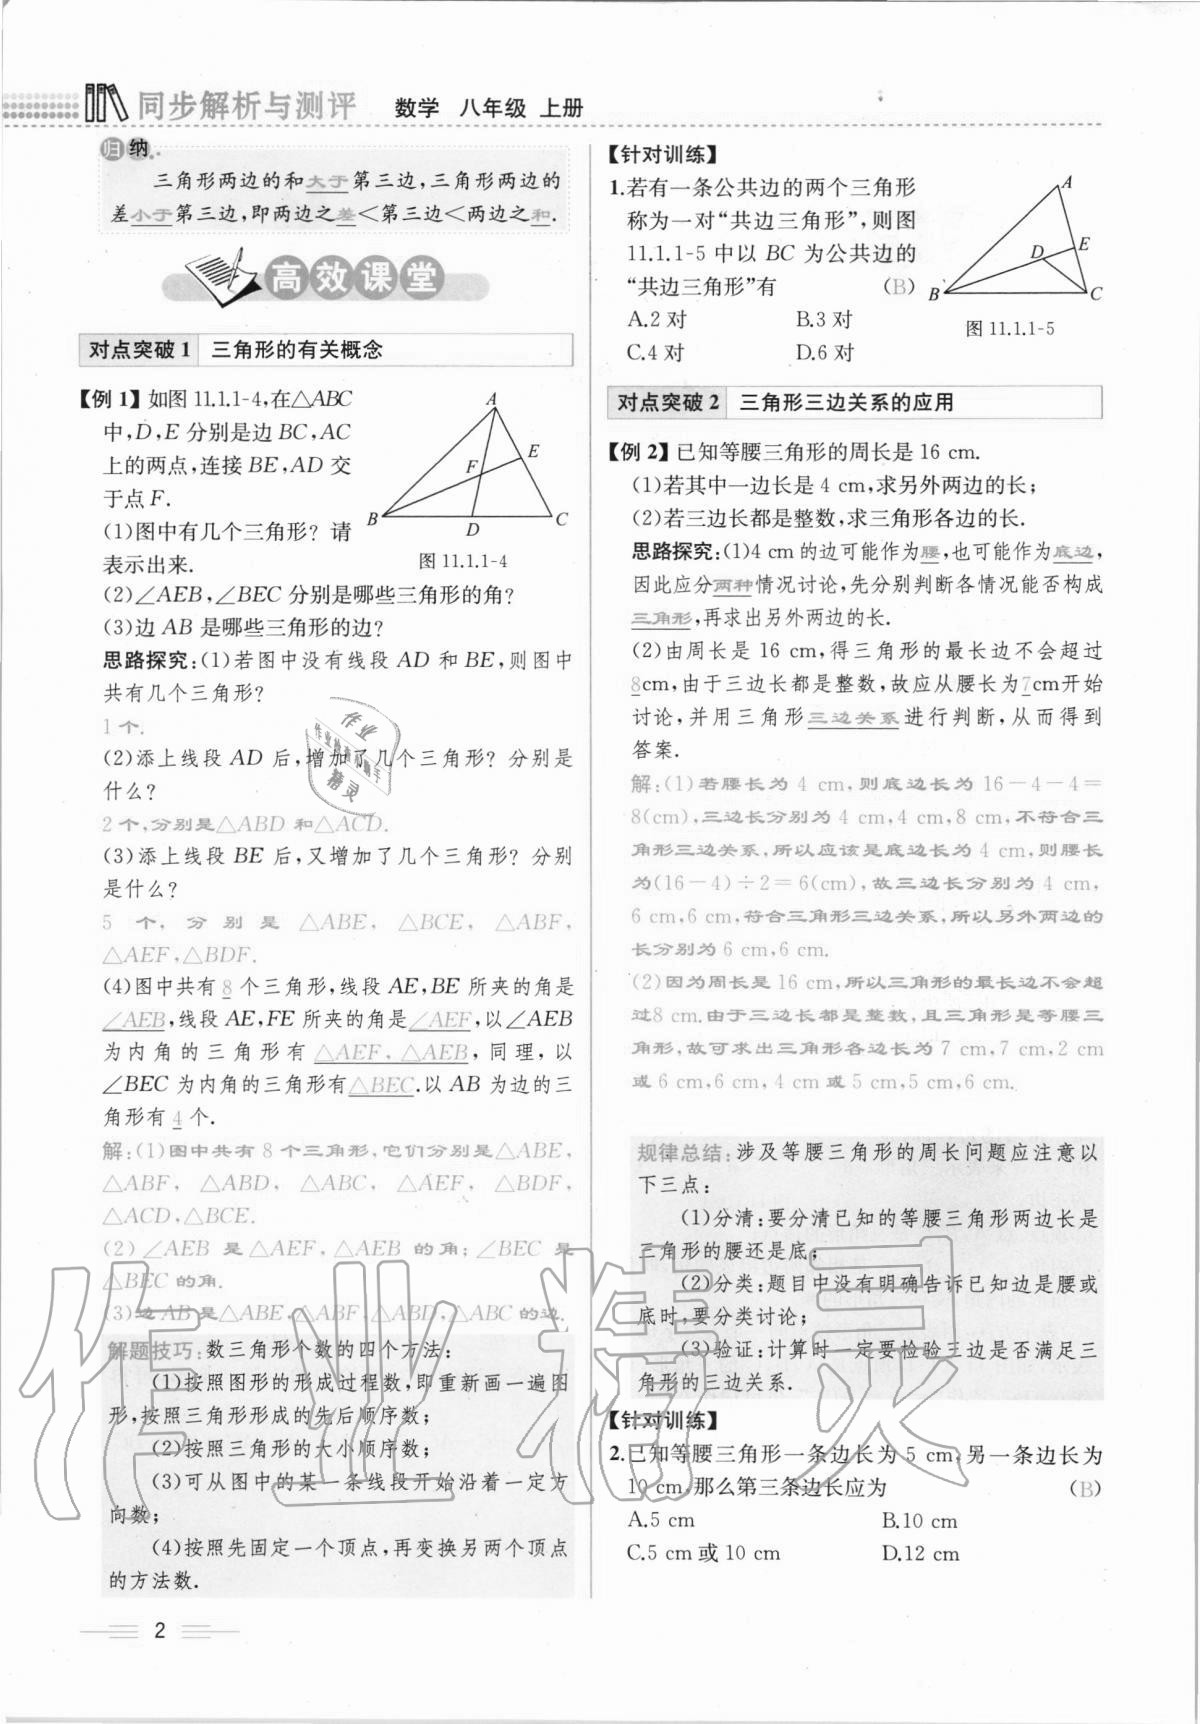 同步解析与测评 数学 八年级 上册
归纳
三角形两边的和大于第三边,三角形两边的
差小于第三边,即两边之差<第三边<两边之和.
高效课堂
对点突破1 三角形的有关概念
【例1】如图11.1.1-4,在△ABC
中,D,E分别是边BC,AC
上的两点,连接BE,AD交
于点F.
(1)图中有几个三角形?请
表示出来.
A
E
F
B
D
C
图11.1.1-4
(2)∠AEB,∠BEC分别是哪些三角形的角?
(3)边AB是哪些三角形的边?
思路探究:(1)若图中没有线段AD和BE,则图中
共有几个三角形?
1个.
(2)添上线段AD后,增加了几个三角形?分别是
什么?
2个,分别是△ABD和△ACD.
(3)添上线段BE后,又增加了几个三角形?分别
是什么?
5个,分别是△ABE,△BCE,△ABF,
△AEF,△BDF.
(4)图中共有8个三角形,线段AE,BE所夹的角是
∠AEB,线段AE,FE所夹的角是∠AEF,以∠AEB
为内角的三角形有△AEF,△AEB,同理,以
∠BEC为内角的三角形有△BEC.以AB为边的三
角形有4个.
解:(1)图中共有8个三角形,它们分别是△ABE,
△ABF,△ABD,△ABC,△AEF,△BDF,
△ACD,△BCE.
(2)∠AEB是△AEF,△AEB的角;∠BEC是
△BEC的角.
(3)边AB是△ABE,△ABF,△ABD,△ABC的边.
解题技巧:数三角形个数的四个方法:
(1)按照图形的形成过程数,即重新画一遍图
形,按照三角形形成的先后顺序数;
(2)按照三角形的大小顺序数;
(3)可从图中的某一条线段开始沿着一定方
向数;
(4)按照先固定一个顶点,再变换另两个顶点
的方法数.
2
【针对训练】
1.若有一条公共边的两个三角形
称为一对“共边三角形”,则图
11.1.1-5中以BC为公共边的
“共边三角形”有 (B)
A.2对 B.3对
C.4对 D.6对
A
E
D
B
C
图11.1.1-5
对点突破2 三角形三边关系的应用
【例2】已知等腰三角形的周长是16 cm.
(1)若其中一边长是4 cm,求另外两边的长;
(2)若三边长都是整数,求三角形各边的长.
思路探究:(1)4 cm的边可能作为腰,也可能作为底边,
因此应分两种情况讨论,先分别判断各情况能否构成
三角形,再求出另外两边的长.
(2)由周长是16 cm,得三角形的最长边不会超过
8cm,由于三边长都是整数,故应从腰长为7cm开始
讨论,并用三角形三边关系进行判断,从而得到
答案.
解:(1)若腰长为4 cm,则底边长为16-4-4=
8(cm),三边长分别为4 cm,4 cm,8 cm,不符合三
角形三边关系,所以应该是底边长为4 cm,则腰长
为(16-4)÷2=6(cm),故三边长分别为4 cm,
6 cm,6 cm,符合三角形三边关系,所以另外两边的
长分别为6 cm,6 cm.
(2)因为周长是16 cm,所以三角形的最长边不会超
过8 cm.由于三边长都是整数,且三角形是等腰三
角形,故可求出三角形各边长为7 cm,7 cm,2 cm
或6 cm,6 cm,4 cm或5 cm,5 cm,6 cm.
规律总结:涉及等腰三角形的周长问题应注意以
下三点:
(1)分清:要分清已知的等腰三角形两边长是
三角形的腰还是底;
(2)分类:题目中没有明确告诉已知边是腰或
底时,要分类讨论;
(3)验证:计算时一定要检验三边是否满足三
角形的三边关系.
【针对训练】
2.已知等腰三角形一条边长为5 cm,另一条边长为
10 cm,那么第三条边长应为 (B)
A.5 cm B.10 cm
C.5 cm或10 cm D.12 cm
作业精灵